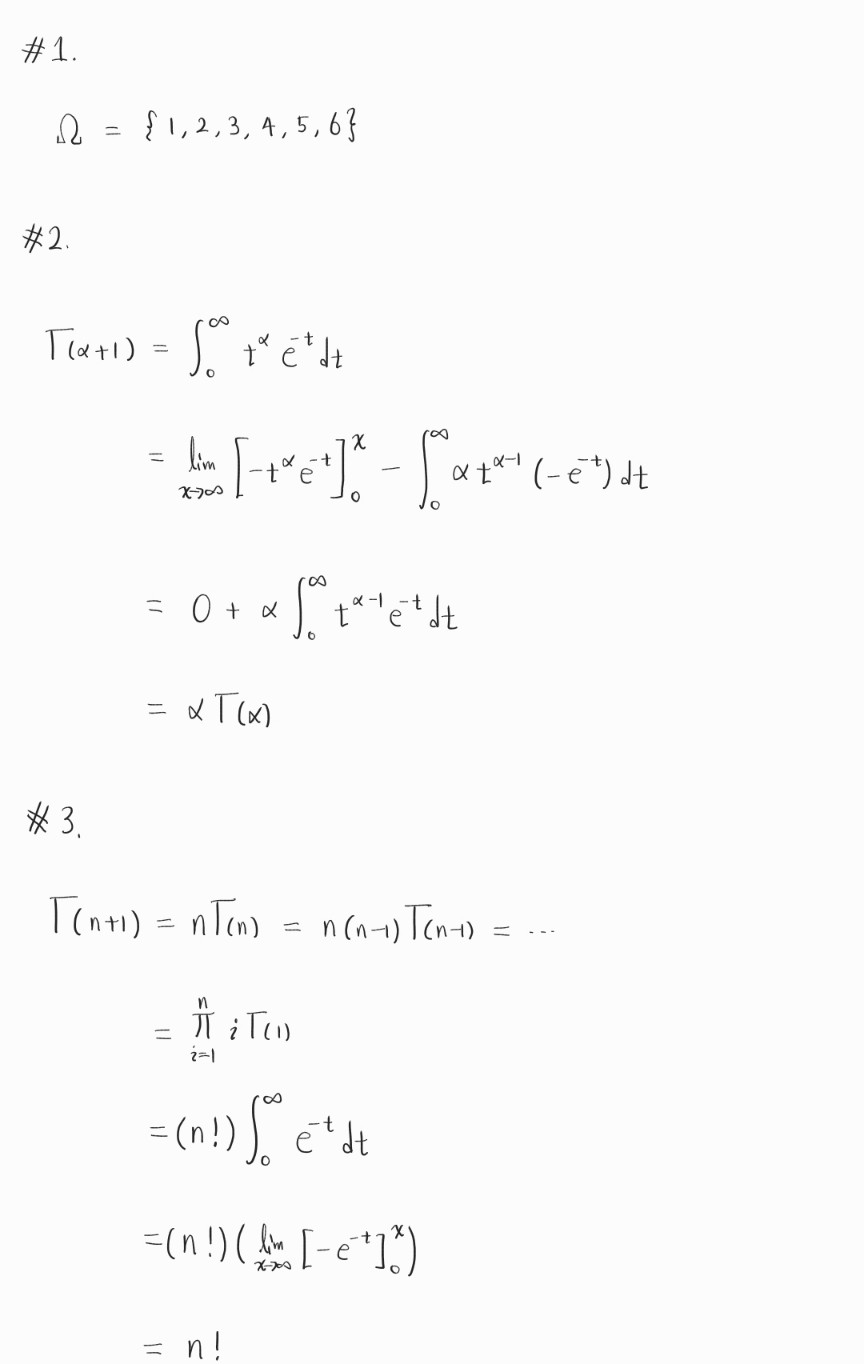 #1.
Ω = {1, 2, 3, 4, 5, 6}
#2.
Γ(α+1) = ∫₀^∞ t^α e^{-t} dt
= lim_{x→∞} [-t^α e^{-t}]₀^x - ∫₀^∞ α t^{α-1} (-e^{-t}) dt
= 0 + α ∫₀^∞ t^{α-1} e^{-t} dt
= α Γ(α)
#3.
Γ(n+1) = nΓ(n) = n(n-1)Γ(n-1) = ...
= ∏_{i=1}^n i Γ(1)
= (n!) ∫₀^∞ e^{-t} dt
= (n!) ( lim_{x→∞} [-e^{-t}]₀^x )
= n!